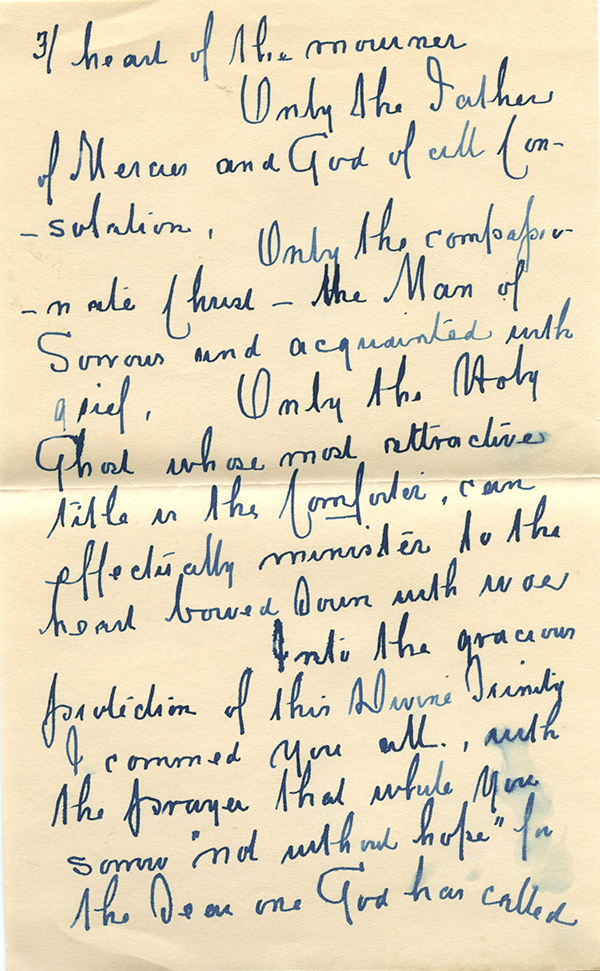 3/ heart of the mourner
Only the Father
of Mercies and God of all Con-
-solation. Only the compassio-
-nate Christ - the Man of
Sorrows and acquainted with
grief. Only the Holy
Ghost whose most attractive
title is the Comforter, can
effectually minister to the
heart bowed Down with woe
Into the gracious
protection of this Divine Trinity
I commed you all., with
the prayer that while you
sorrow "not without hope" for
the Dear one God has called